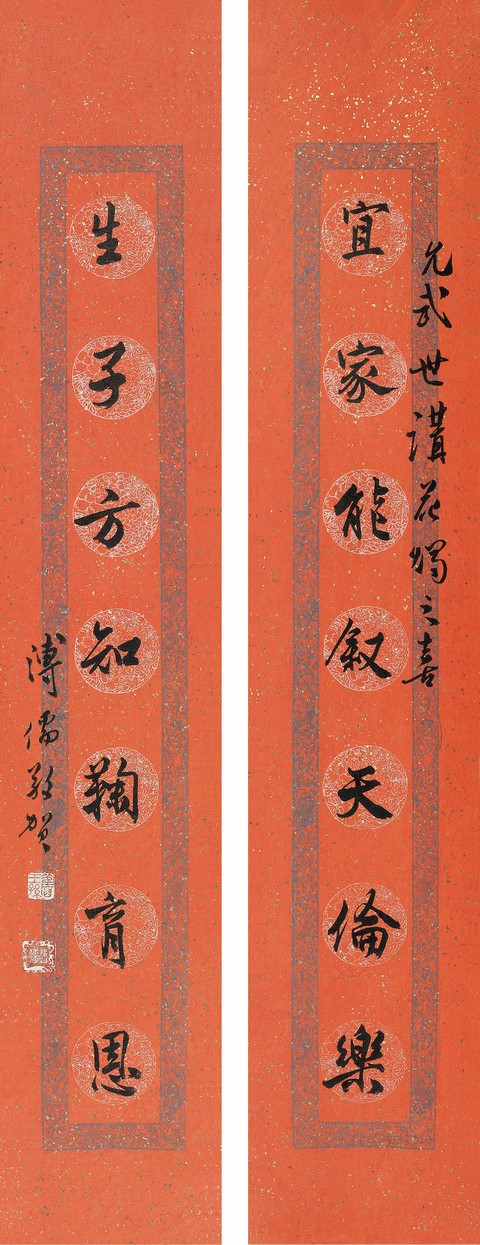 允武世講花燭之喜
宜家能叙天倫樂
生子方知鞠育恩
溥儒敬賀